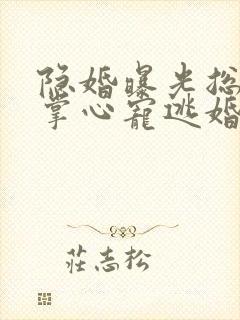 隐婚曝光总
掌心宠逃婚
莊志松